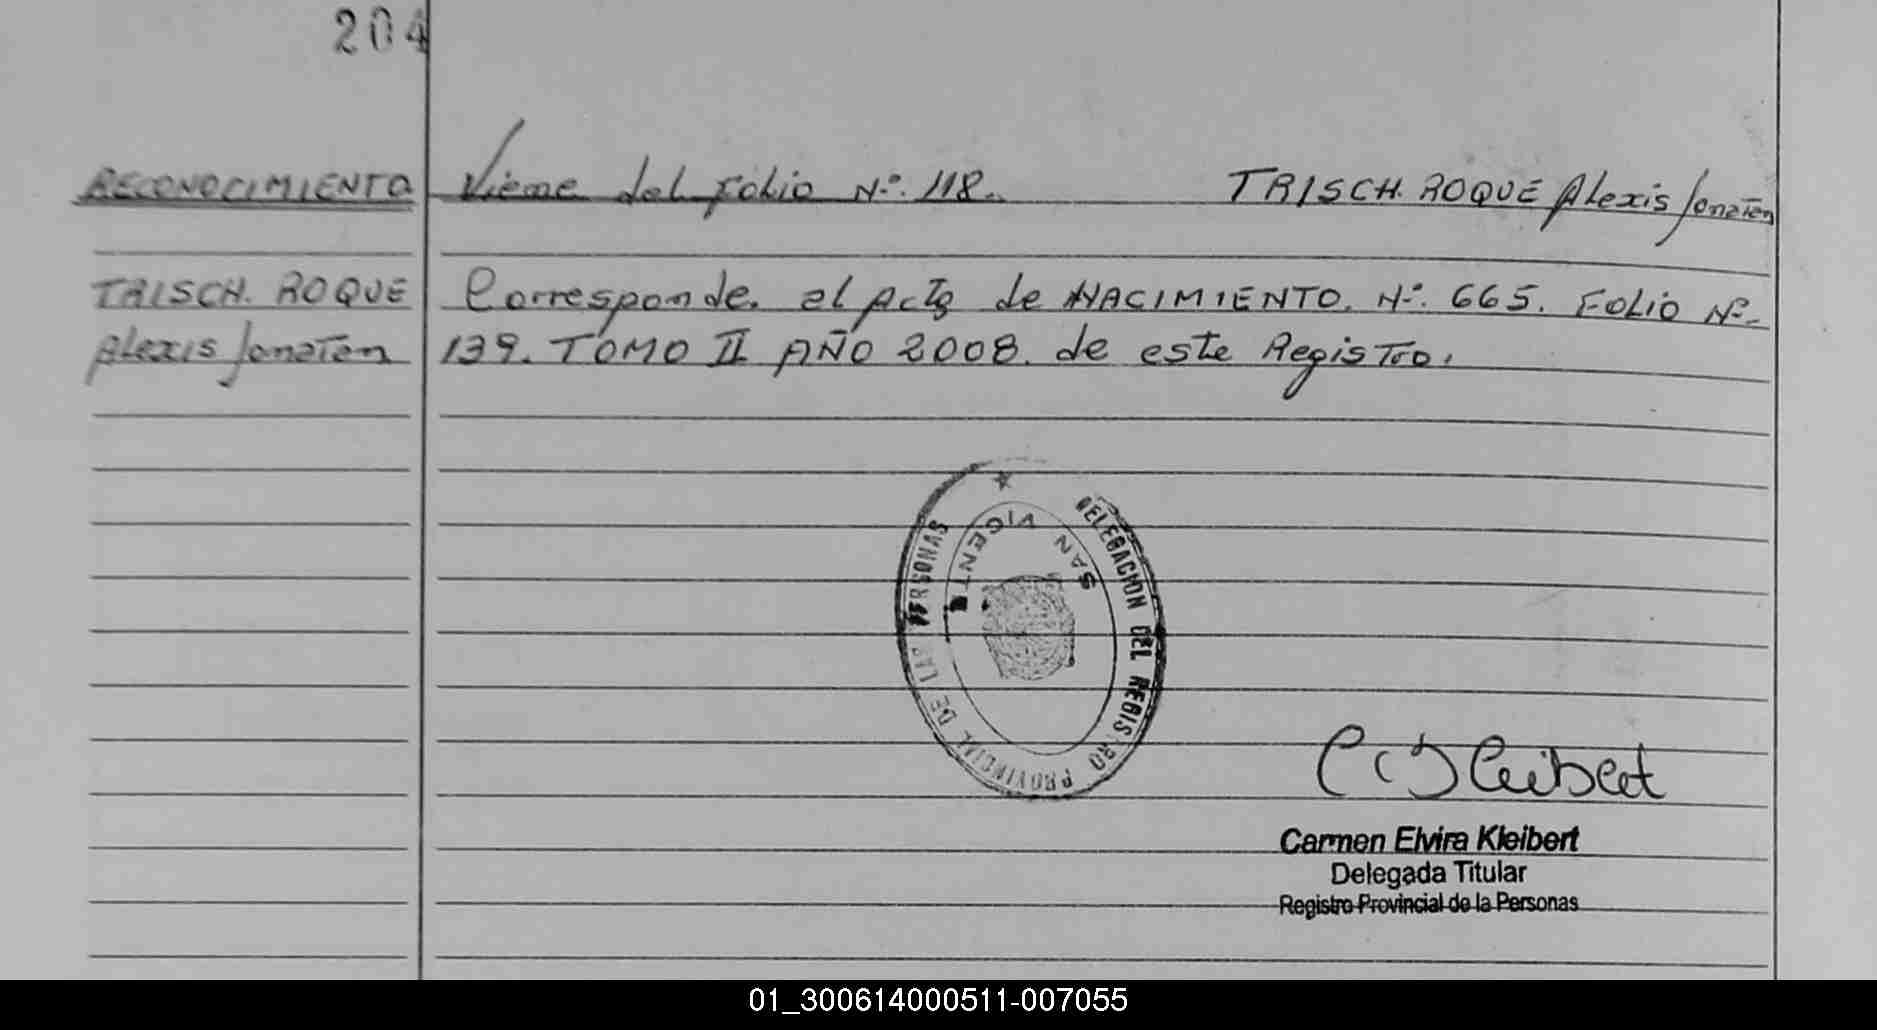 204
RECONOCIMIENTO
TRISCH. ROQUE
Alexis Jonatan
Viene del Folio Nº. 118. TRISCH. ROQUE Alexis Jonatan
Corresponde. al Acta de NACIMIENTO. Nº. 665. FOLIO Nº-
139. TOMO II AÑO 2008. de este Registro.
DELEGACION DEL REGISTRO PROVINCIAL DE LAS PERSONAS
SAN VICENTE
Carmen Elvira Kleibert
Delegada Titular
Registro Provincial de la Personas
01_300614000511-007055